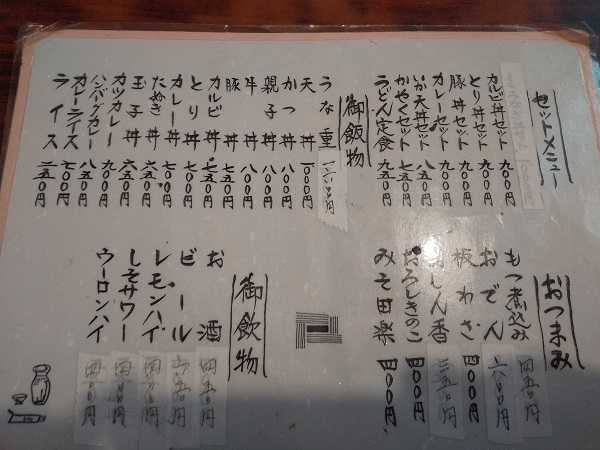 セットメニュー
カルビ丼セット 九〇〇円
とり丼セット 九〇〇円
豚丼セット 九〇〇円
カレーセット 九〇〇円
いか天丼セット 八五〇円
かやくセット 七五〇円
うどん定食 九五〇円
御飯物
うな重
天丼 一〇〇〇円
かつ丼 八〇〇円
親子丼 八〇〇円
牛丼 八〇〇円
豚丼 七五〇円
カルビ丼 七五〇円
とり丼 七〇〇円
カレー丼 七〇〇円
たぬき丼 六五〇円
玉子丼 六五〇円
カツカレー 九〇〇円
ハンバーグカレー 八五〇円
カレーライス 七〇〇円
ライス 二五〇円
おつまみ
もつ煮込み 四五〇円
おでん 六〇〇円
板わさ 四〇〇円
おしん香 三五〇円
おろしきのこ 四〇〇円
みそ田楽 四〇〇円
御飲物
お酒 四五〇円
ビール 六五〇円
レモンハイ 四〇〇円
しそサワー 四〇〇円
ウーロンハイ 四〇〇円